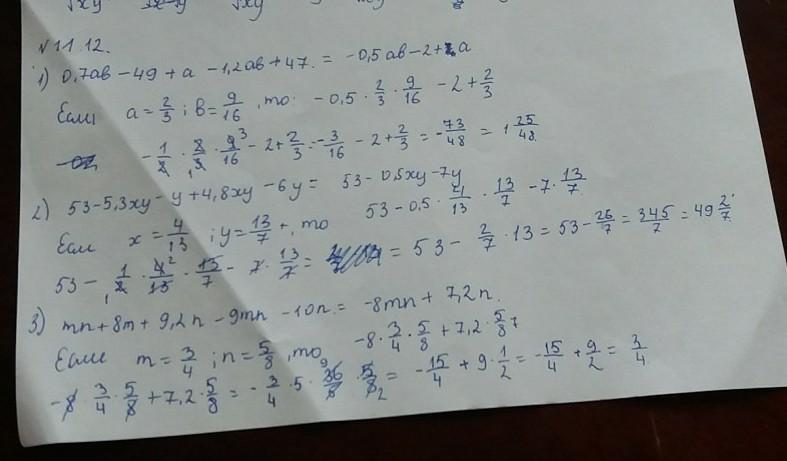 √xy √xy √xy
№11.12.
1) 0,7ab - 49 + a - 1,2ab + 47 = -0,5ab - 2 + a
Если a = 2/3 ; b = 9/16 , то: -0,5 · 2/3 · 9/16 - 2 + 2/3
-1/2 · 2/3 · 9/16 - 2 + 2/3 = -3/16 - 2 + 2/3 = -73/48 = 1 25/48
2) 53 - 5,3xy - y + 4,8xy - 6y = 53 - 0,5xy - 7y
Если x = 4/13 ; y = 13/7 , то 53 - 0,5 · 4/13 · 13/7 - 7 · 13/7
53 - 1/2 · 4/13 · 13/7 - 7 · 13/7 = = 53 - 2/7 · 13 = 53 - 26/7 = 345/7 = 49 2/7
3) mn + 8m + 9,2n - 9mn - 10n = -8mn + 7,2n
Если m = 3/4 ; n = 5/8 , то -8 · 3/4 · 5/8 + 7,2 · 5/8
-8 · 3/4 · 5/8 + 7,2 · 5/8 = -3/4 · 5 · 36/5 · 5/8 = -15/4 + 9 · 1/2 = -15/4 + 9/2 = 3/4